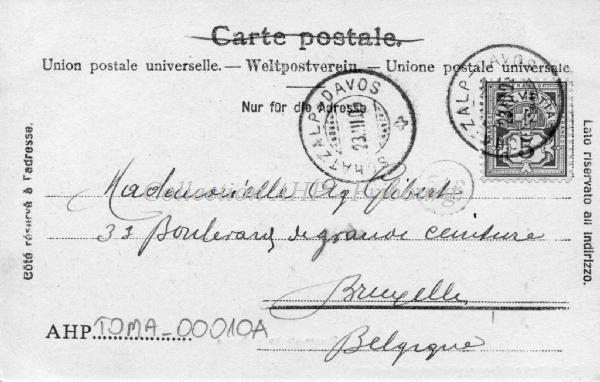 Carte postale.
Union postale universelle. — Weltpostverein. — Unione postale universale
Nur für die Adresse
SCHATZALP (DAVOS
23.III.0
ZALP (DAVOS
HELVETIA
5
Côté réservé à l'adresse.
Lato riservato all indirizzo.
Mademoiselle
33 Boulevard de grande ceinture
Bruxelles
Belgique
AHP TOMA_00010A